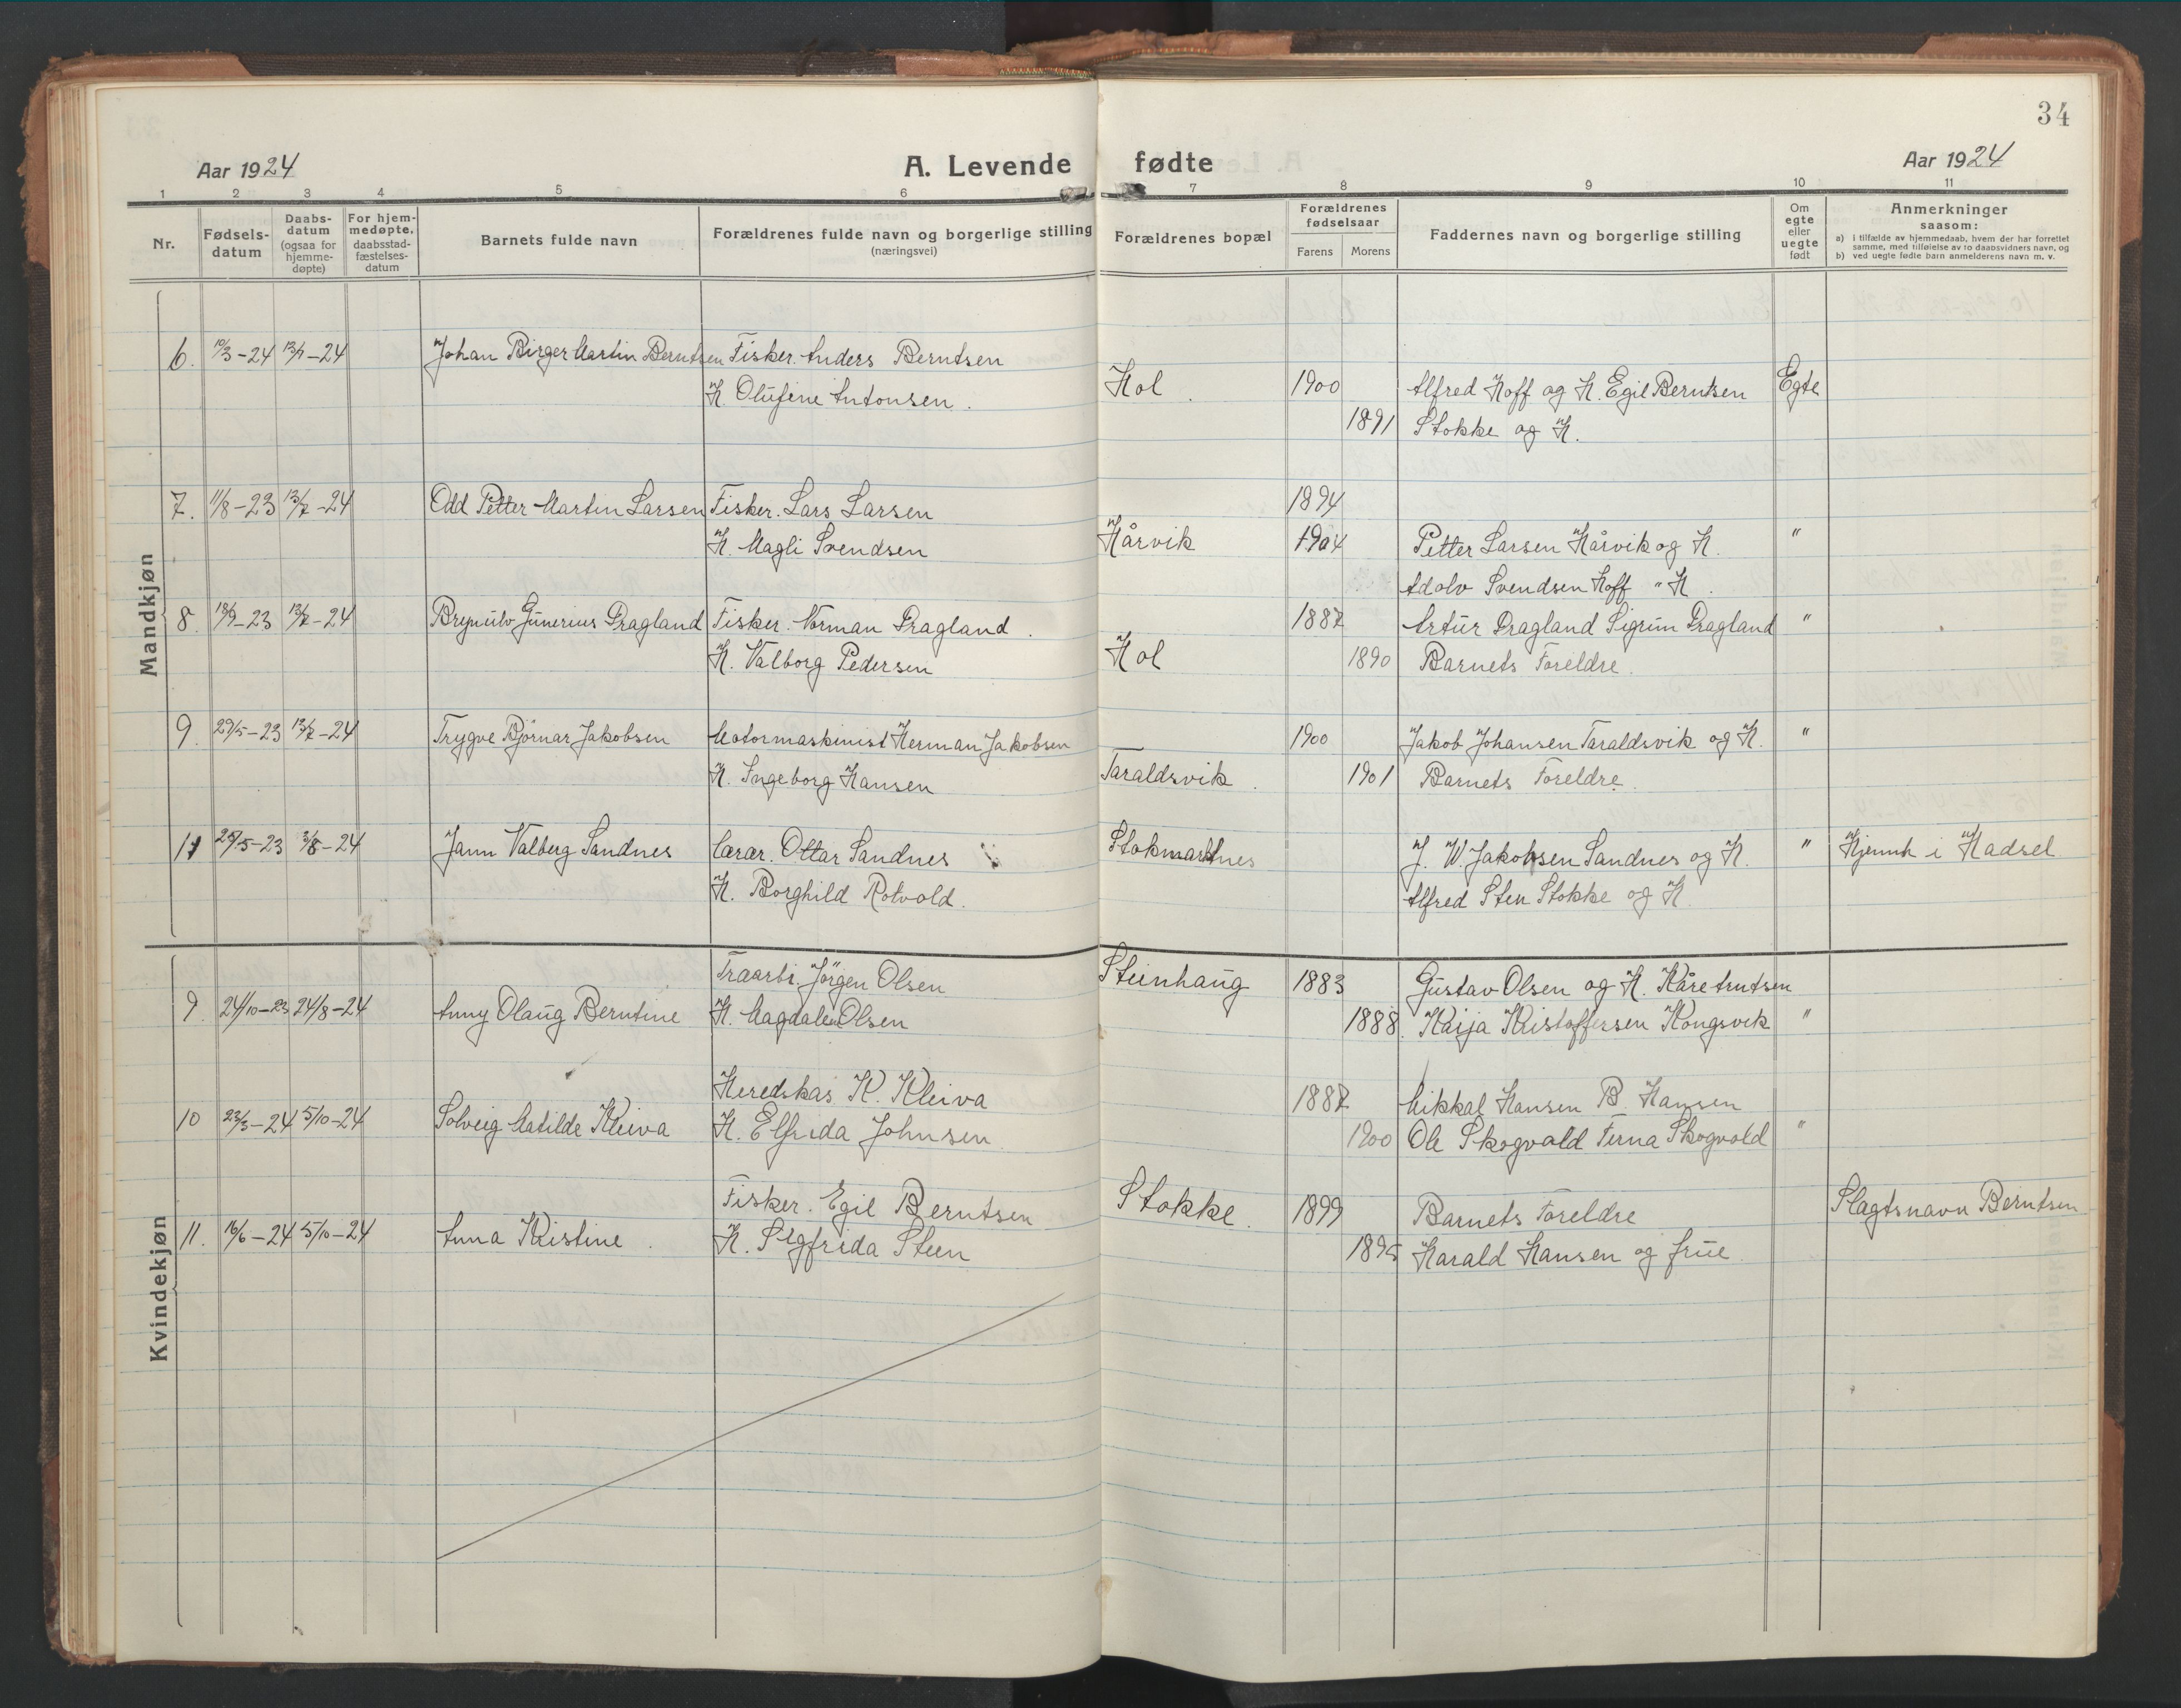 34
Aar 1924 A. Levende fødte Aar 1924
1 2 3 4 5 6 7 8 9 10 11
Nr. Fødsels-datum Daabs-datum (ogsaa for hjemme-døpte) For hjem-medøpte, daabsstad-fæstelses-datum Barnets fulde navn Forældrenes fulde navn og borgerlige stilling (næringsvei) Forældrenes bopæl Forældrenes fødselsaar Farens Morens Faddernes navn og borgerlige stilling Om egte eller uegte født Anmerkninger saasom: a) i tilfælde av hjemmedaab, hvem der har forrettet samme, med tilføielse av to daabsvidners navn, og b) ved uegte fødte barn anmelderens navn m. v.
Mandkjøn
6. 10/3-24 13/7-24 Johan Birger Martin Berntsen Fisker. Anders Berntsen
K. Olufine Antonsen. Hol. 1900 Alfred Hoff og K. Egil Berntsen Egte
1891 Stokke og K.
7. 11/8-23 13/7-24 Odd Petter Martin Larsen Fisker. Lars Larsen 1894
K. Magli Svendsen Hårvik 1904 Petter Larsen Hårvik og K. "
Adolv Svendsen Hoff " K.
8. 18/9-23 13/7-24 Brynulv Gunerius Dragland Fisker. Norman Dragland. 1887 Artur Dragland Sigrun Dragland "
K. Valborg Pedersen Hol 1890 Barnets Foreldre.
9. 29/5-23 13/7-24 Trygve Bjørnar Jakobsen Motormaskinist Herman Jakobsen 1900 Jakob Johansen Taraldsvik og K. "
K. Ingeborg Hansen Taraldsvik. 1901 Barnets Foreldre.
11 25/5-23 3/8-24 Jann Valberg Sandnes Lærar. Ottar Sandnes Stokmarknes J. W. Jakobsen Sandnes og K. " Hjemh i Hadsel
K. Borghild Rotvold. Alfred Sten Stokke og K.
Kvindekjøn
Traarb. Jörgen Olsen Steinhaug 1883 Gustav Olsen og K. Kåre Arntsen
9. 24/10-23 24/8-24 Anny Olaug Berntine K. Magdalen Olsen 1888. Kaija Kristoffersen Kongsvik "
Heredskas K. Kleiva 1887 Mikkal Hansen B. Hansen
10 23/3-24 5/10-24 Solveig Matilde Kleiva K. Elfrida Johnsen 1900 Ole Skogvold Ferna Skogvold "
Fisker. Egil Berntsen Stokke. 1899 Barnets Foreldre Slagtsnavn Berntsen
11. 16/6-24 5/10-24 Anna Kristine. K. Sigfrida Steen 1895 Harald Hansen og frue.